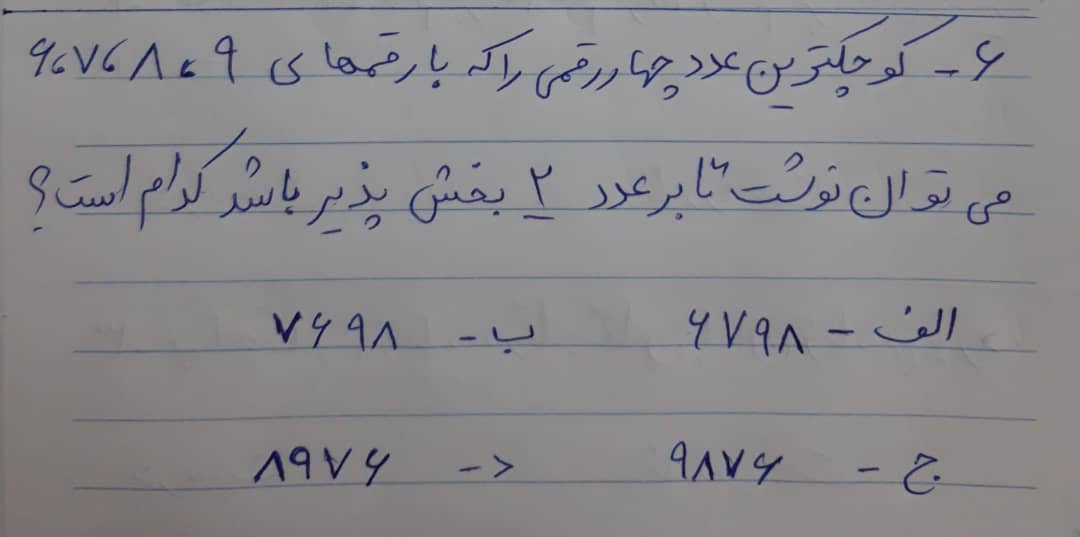 ۶- کوچکترین عدد چهاررقمی را که با رقمهای ۹، ۸، ۷، ۶
می توان نوشت تا بر عدد ۲ بخش پذیر باشد کدام است؟
الف - ۶۷۹۸ ب - ۷۶۹۸
ج - ۹۸۷۶ د - ۸۹۷۶